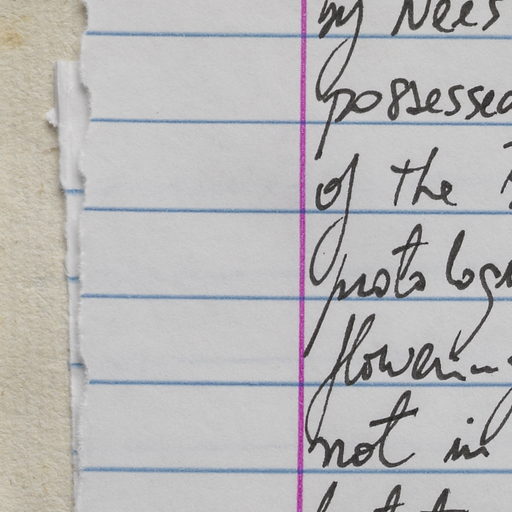 by Nees
possessed
of the
protolog
flowering
not in